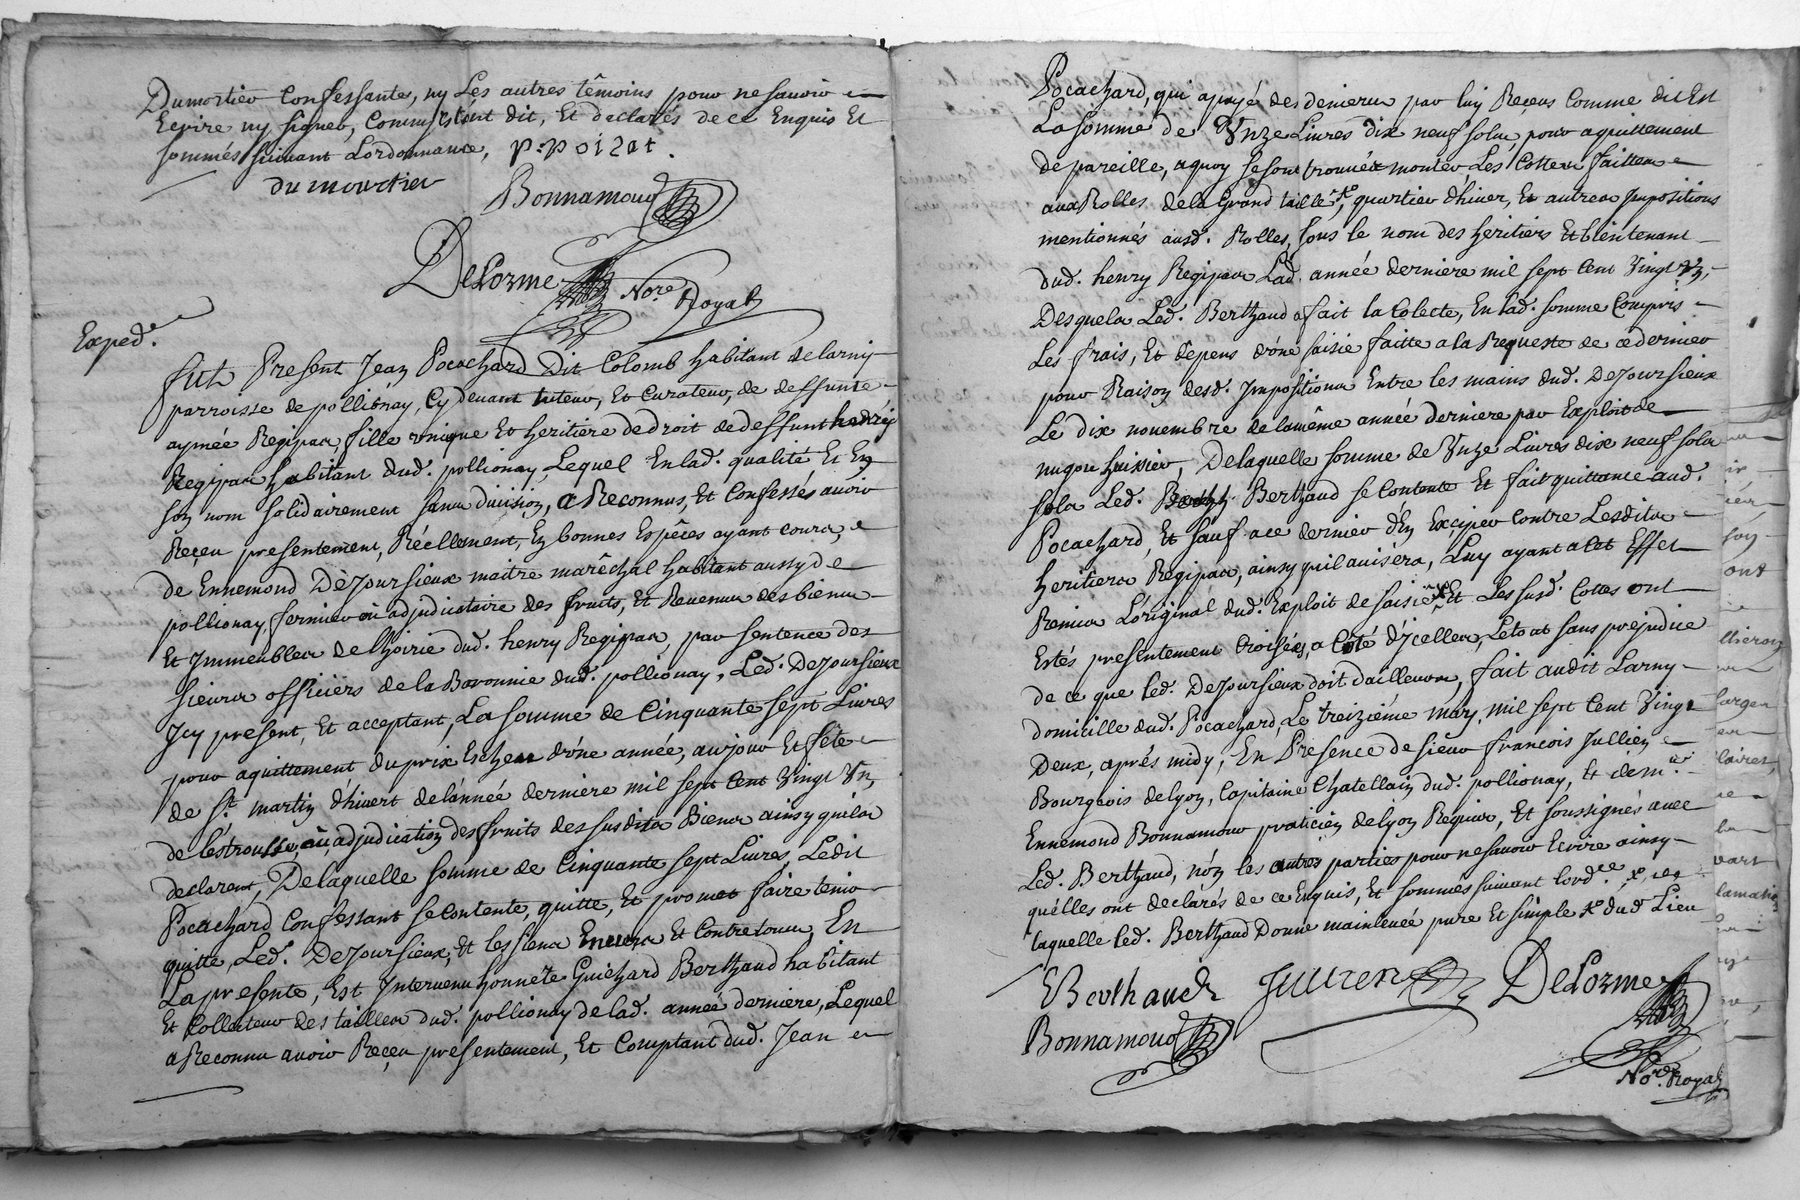 Dumortier Confessante, ny Les autres têmoins pour ne savoir
Ecrire ny signer, Comm'ils ont dit, Et declarés de ce Enquis Et
sommés suivant Lordonnance, P:Poizat.
du mourtier Bonnamour
DeLorme Nore. Royal
Exped.
fut Present Jean Pocachard Dit Colomb habitant de larny
parroisse de pollionay, Cy devant tuteur, Et Curateur, de deffunte
aymée Regipas fille unique Et heritiere de droit de deffunt
Regipas habitant dud. pollionay, Lequel En lad. qualité Et En
son nom solidairement sans division, a Reconnus, Et Confessés avoir
Reçeu presentement, Réellement, En bonnes Espêces ayant cours,
de Ennemond DeJoursieux maitre marêchal habitant aussy de
pollionay, fermier ou adjudicataire des fruits, Et Revenus des biens
Et Immeubles de lhoirie dud. henry Regipas, par sentence des
sieurs officiérs de la Baronnie dud. pollionay, Led. DeJoursieux
Icy present, Et acceptant, La somme de Cinquante sept Livres
pour aquittement du prix Escheu d'une année, au jour Et fête
de St. martin d'hivert de lannée derniere mil sept Cent Vingt Un,
de léstrousse, ou adjudication des fruits des susdits Biens ainsy quils
declarent, De laquelle somme de Cinquante sept Livres, Ledit
Pocachard Confessant se Contente, quitte, Et promet faire tenir
quitte, Led. DeJoursieux, Et les siens Envers Et Contre tous, En
La presente, Est Intervenu honnête Guichard Berthaud habitant
Et Collecteur des tailles dud. pollionay de lad. année derniere, Lequel
a Reconnu avoir Reçeu présentement, Et Comptant dud. Jean
Pocachard, qui a payé des deniers par luy Reçeus Comme dit Est
La somme de Unze Livres dix neuf sols, pour aquittement
de pareille, a quoy se sont trouvées monter, Les Cottes faittes
aux Rolles de la Grand taille, quartier d'hiver, Et autres Impositions
mentionnés ausd. Rolles, sous le nom des heritiers Et bientenant
dud. henry Regipas Lad. année derniere mil sept Cent Vingt Un,
Desquels Led. Berthaud a fait la Colecte, En lad. somme Compris
Les frais, Et dêpens d'une saisie faitte a la Requeste de ce dernier
pour Raison desd. Impositions Entre les mains dud. DeJoursieux
Le dix novembre de la même année derniere par Exploit de
huissier, De laquelle somme de Unze Livres dix neuf sols
Led. Berthaud se Contente Et fait quittance aud.
Pocachard, Et sauf a ce dernier d'En Exçiper Contre Lesdits
heritiers Regipas, ainsy quil avisera, Luy ayant a Cet Effet
Remis L'original dud. Exploit de saisie, Et Les susd. Cottes ont
Estés presentement Croisées, a Côté d'jcelles, Le tout sans prejudice
de ce que led. DeJoursieux doit d'ailleurs, fait audit Larny
domicille dud. Pocachard, Le treiziéme mars, mil sept Cent Vingt
Deux, aprés midy, En Presence de sieur françois Jullien
Bourgeois de Lyon, Capitaine Chatellain dud. pollionay, Et de mre.
Ennemond Bonnamour praticien de Lyon Requis, Et soussignés avec
Led. Berthaud, nón les autres parties pour ne savoir Ecrire ainsy
qu'élles ont déclarés de ce Enquis, Et sommés suivant lordce.
laquelle led. Berthaud Donne mainlevée pure Et simple dud. Lieu
EBerthaud Jullien DeLorme
Bonnamour
Nore. Royal